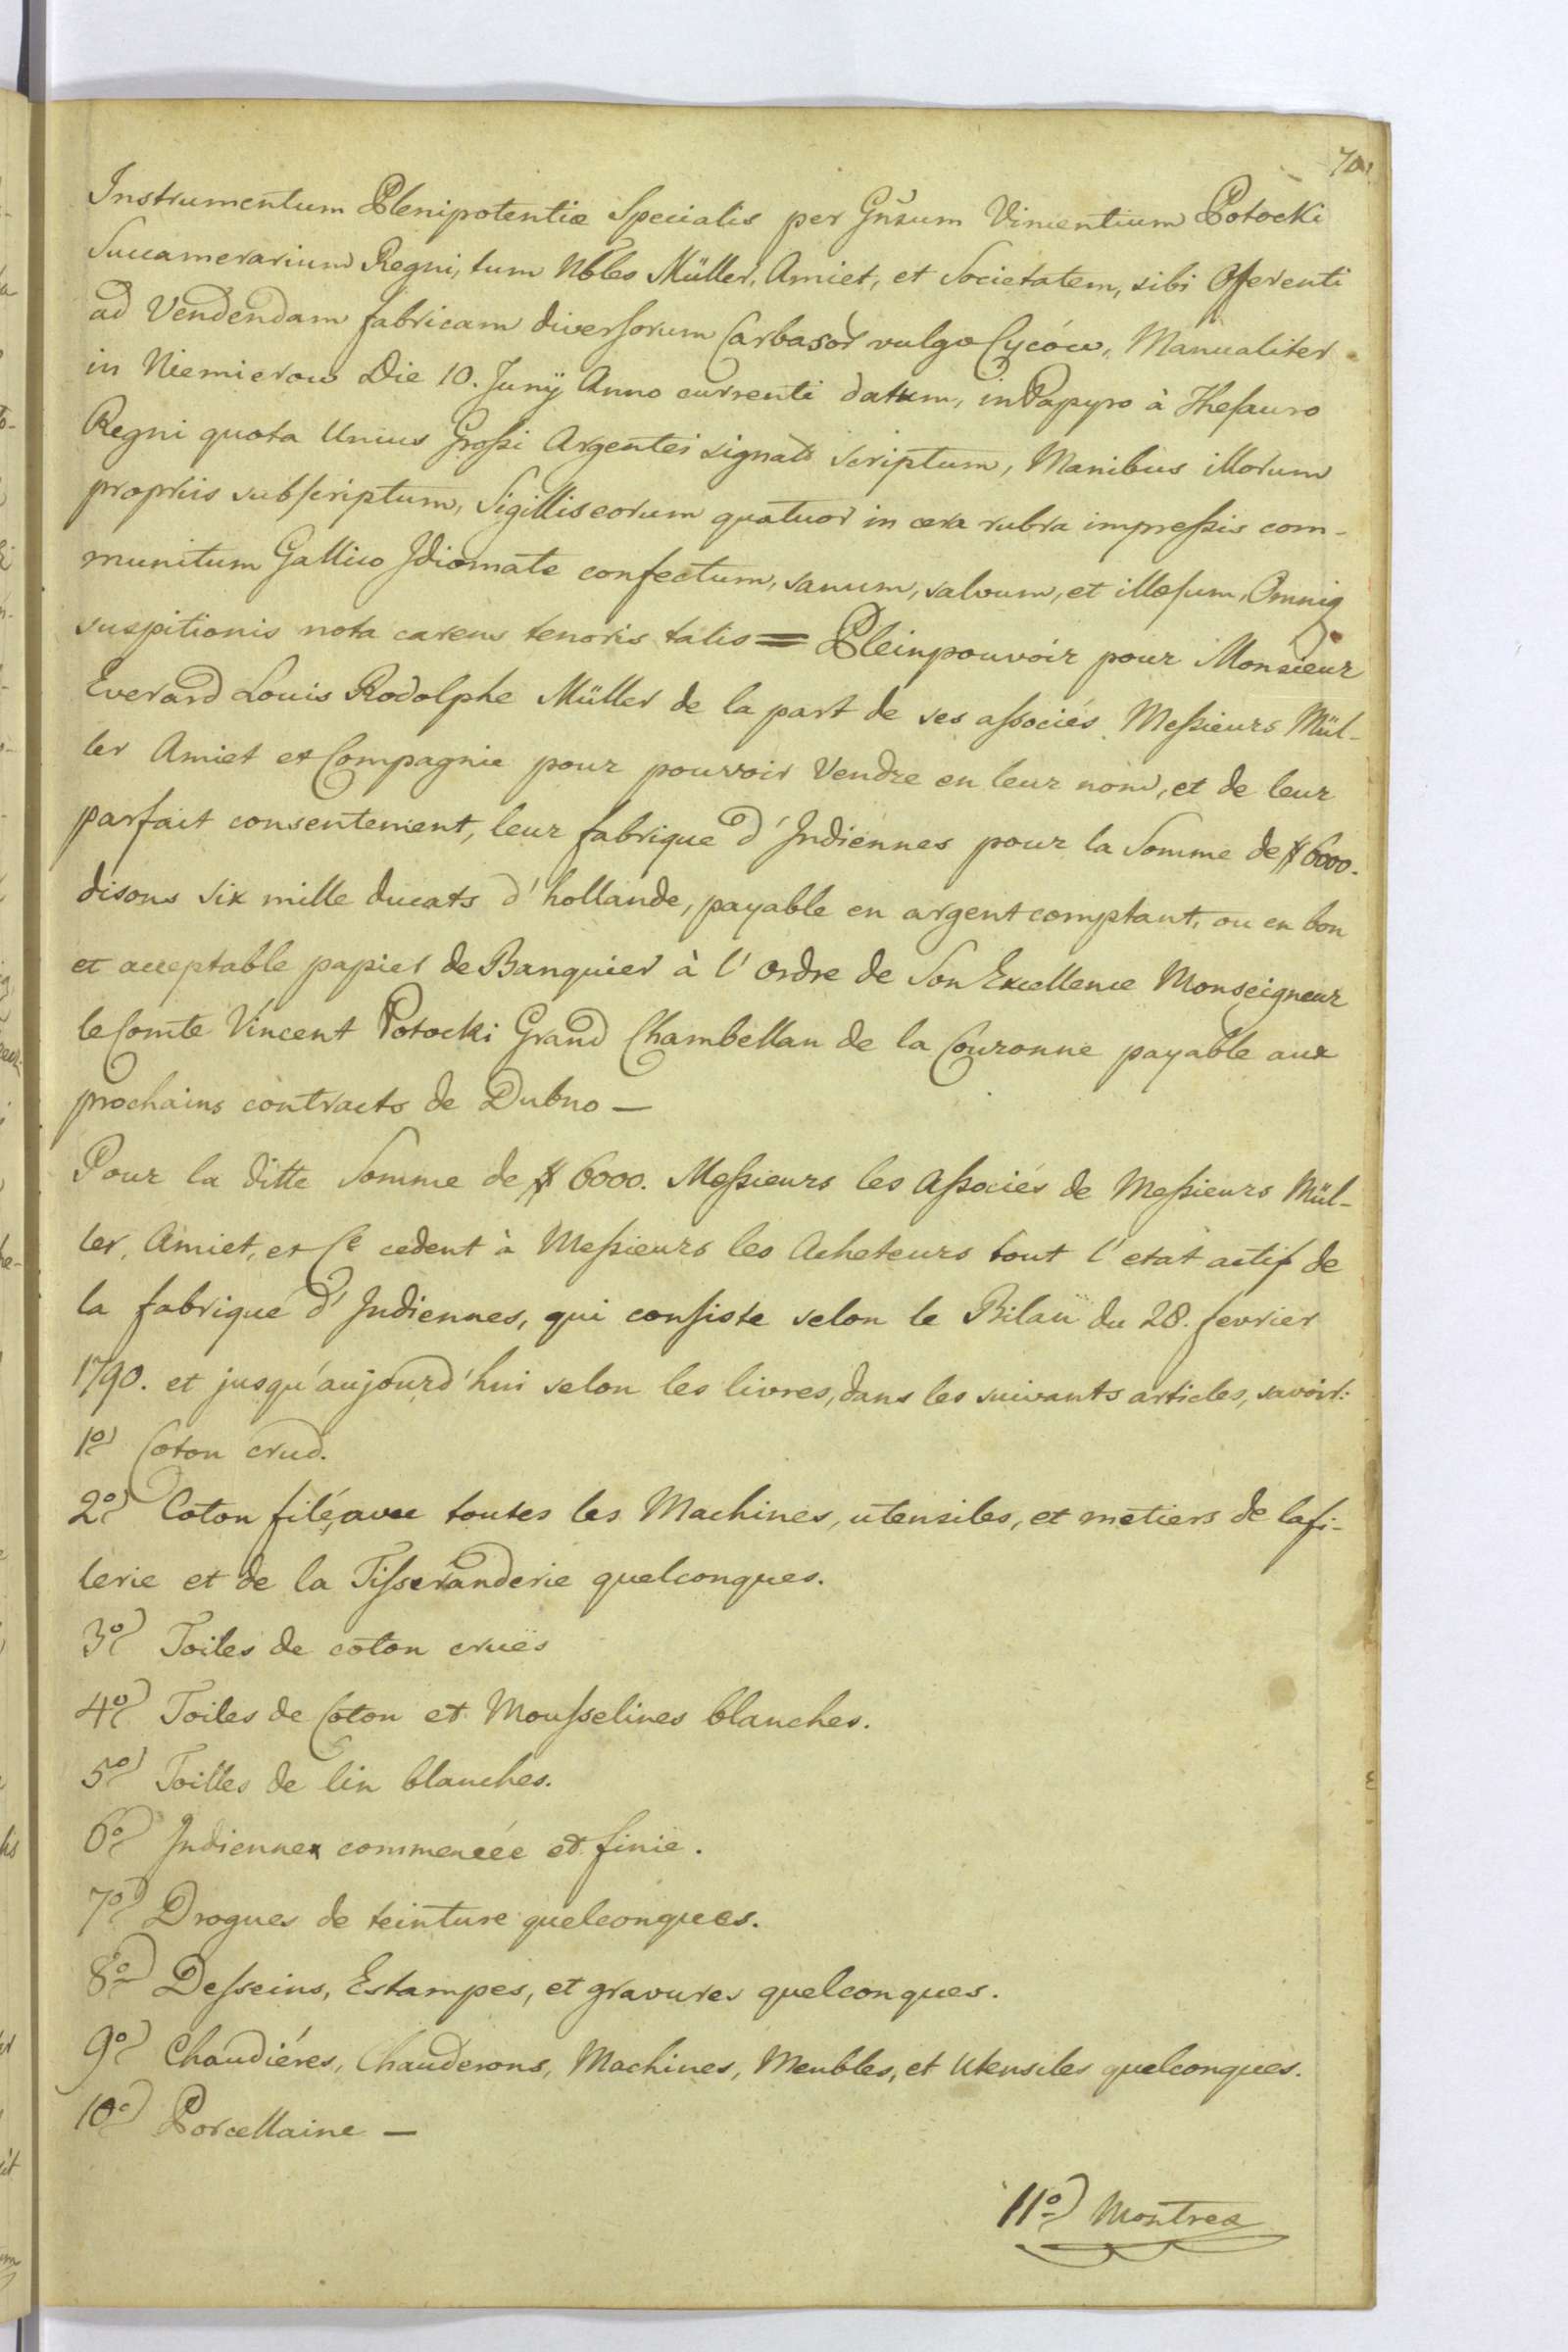 70
Instrumentum Plenipotentiæ Specialis per Gnsum Vincentium Potocki
Succamerarium Regni, tum Nbles Müller, Amiet, et Societatem, sibi Offerenti
ad Vendendam fabricam diversorum Carbasor vulgo Cyców, Manualiter
in Niemierow Die 10. Junÿ Anno currenti datum, in Papyro à Thesauro
Regni quota Unius Grossi Argentei signato scriptum, Manibus illorum
propriis subscriptum, Sigillis eorum quatuor in cera rubra impressis com-
munitum Gallico Idiomate confectum, sanum, salvum, et illæsum, Omniq
suspitionis nota carens tenoris talis = Pleinpouvoir pour Monsieur
Everard Louis Rodolphe Müller de la part de ses associés Messieurs Mül-
ler Amiet et Compagnie pour pouvoir Vendre en leur nom, et de leur
parfait consentement, leur fabrique d'Indiennes pour la Somme de # 6000.
disons six mille ducats d'hollande, payable en argent comptant, ou en bon
et acceptable papier de Banquier à l'Ordre de Son Excellence Monseigneur
le Comte Vincent Potocki Grand Chambellan de la Couronne payable aux
prochains contracts de Dubno —
Pour la ditte Somme de # 6000. Messieurs les Associés de Messieurs Mül-
ler, Amiet, et Ce cedent à Messieurs les Acheteurs tout l'etat actif de
la fabrique d'Indiennes, qui consiste selon le Bilan du 28. fevrier
1790. et jusqu'aujourd'hui selon les livres, dans les suivants articles, savoir:
1o Coton crud.
2o Coton filé, avec toutes les Machines, utensiles, et metiers de la fi-
lerie et de la Tisseranderie quelconques.
3o Toiles de coton crues
4o Toiles de Coton et Mousselines blanches.
5o Toilles de lin blanches.
6o Indienne commencée et finie.
7o Drogues de teinture quelconques.
8o Desseins, Estampes, et gravures quelconques.
9o Chaudiéres, Chauderons, Machines, Meubles, et Utensiles quelconques.
10o Porcellaine —
11o Montres